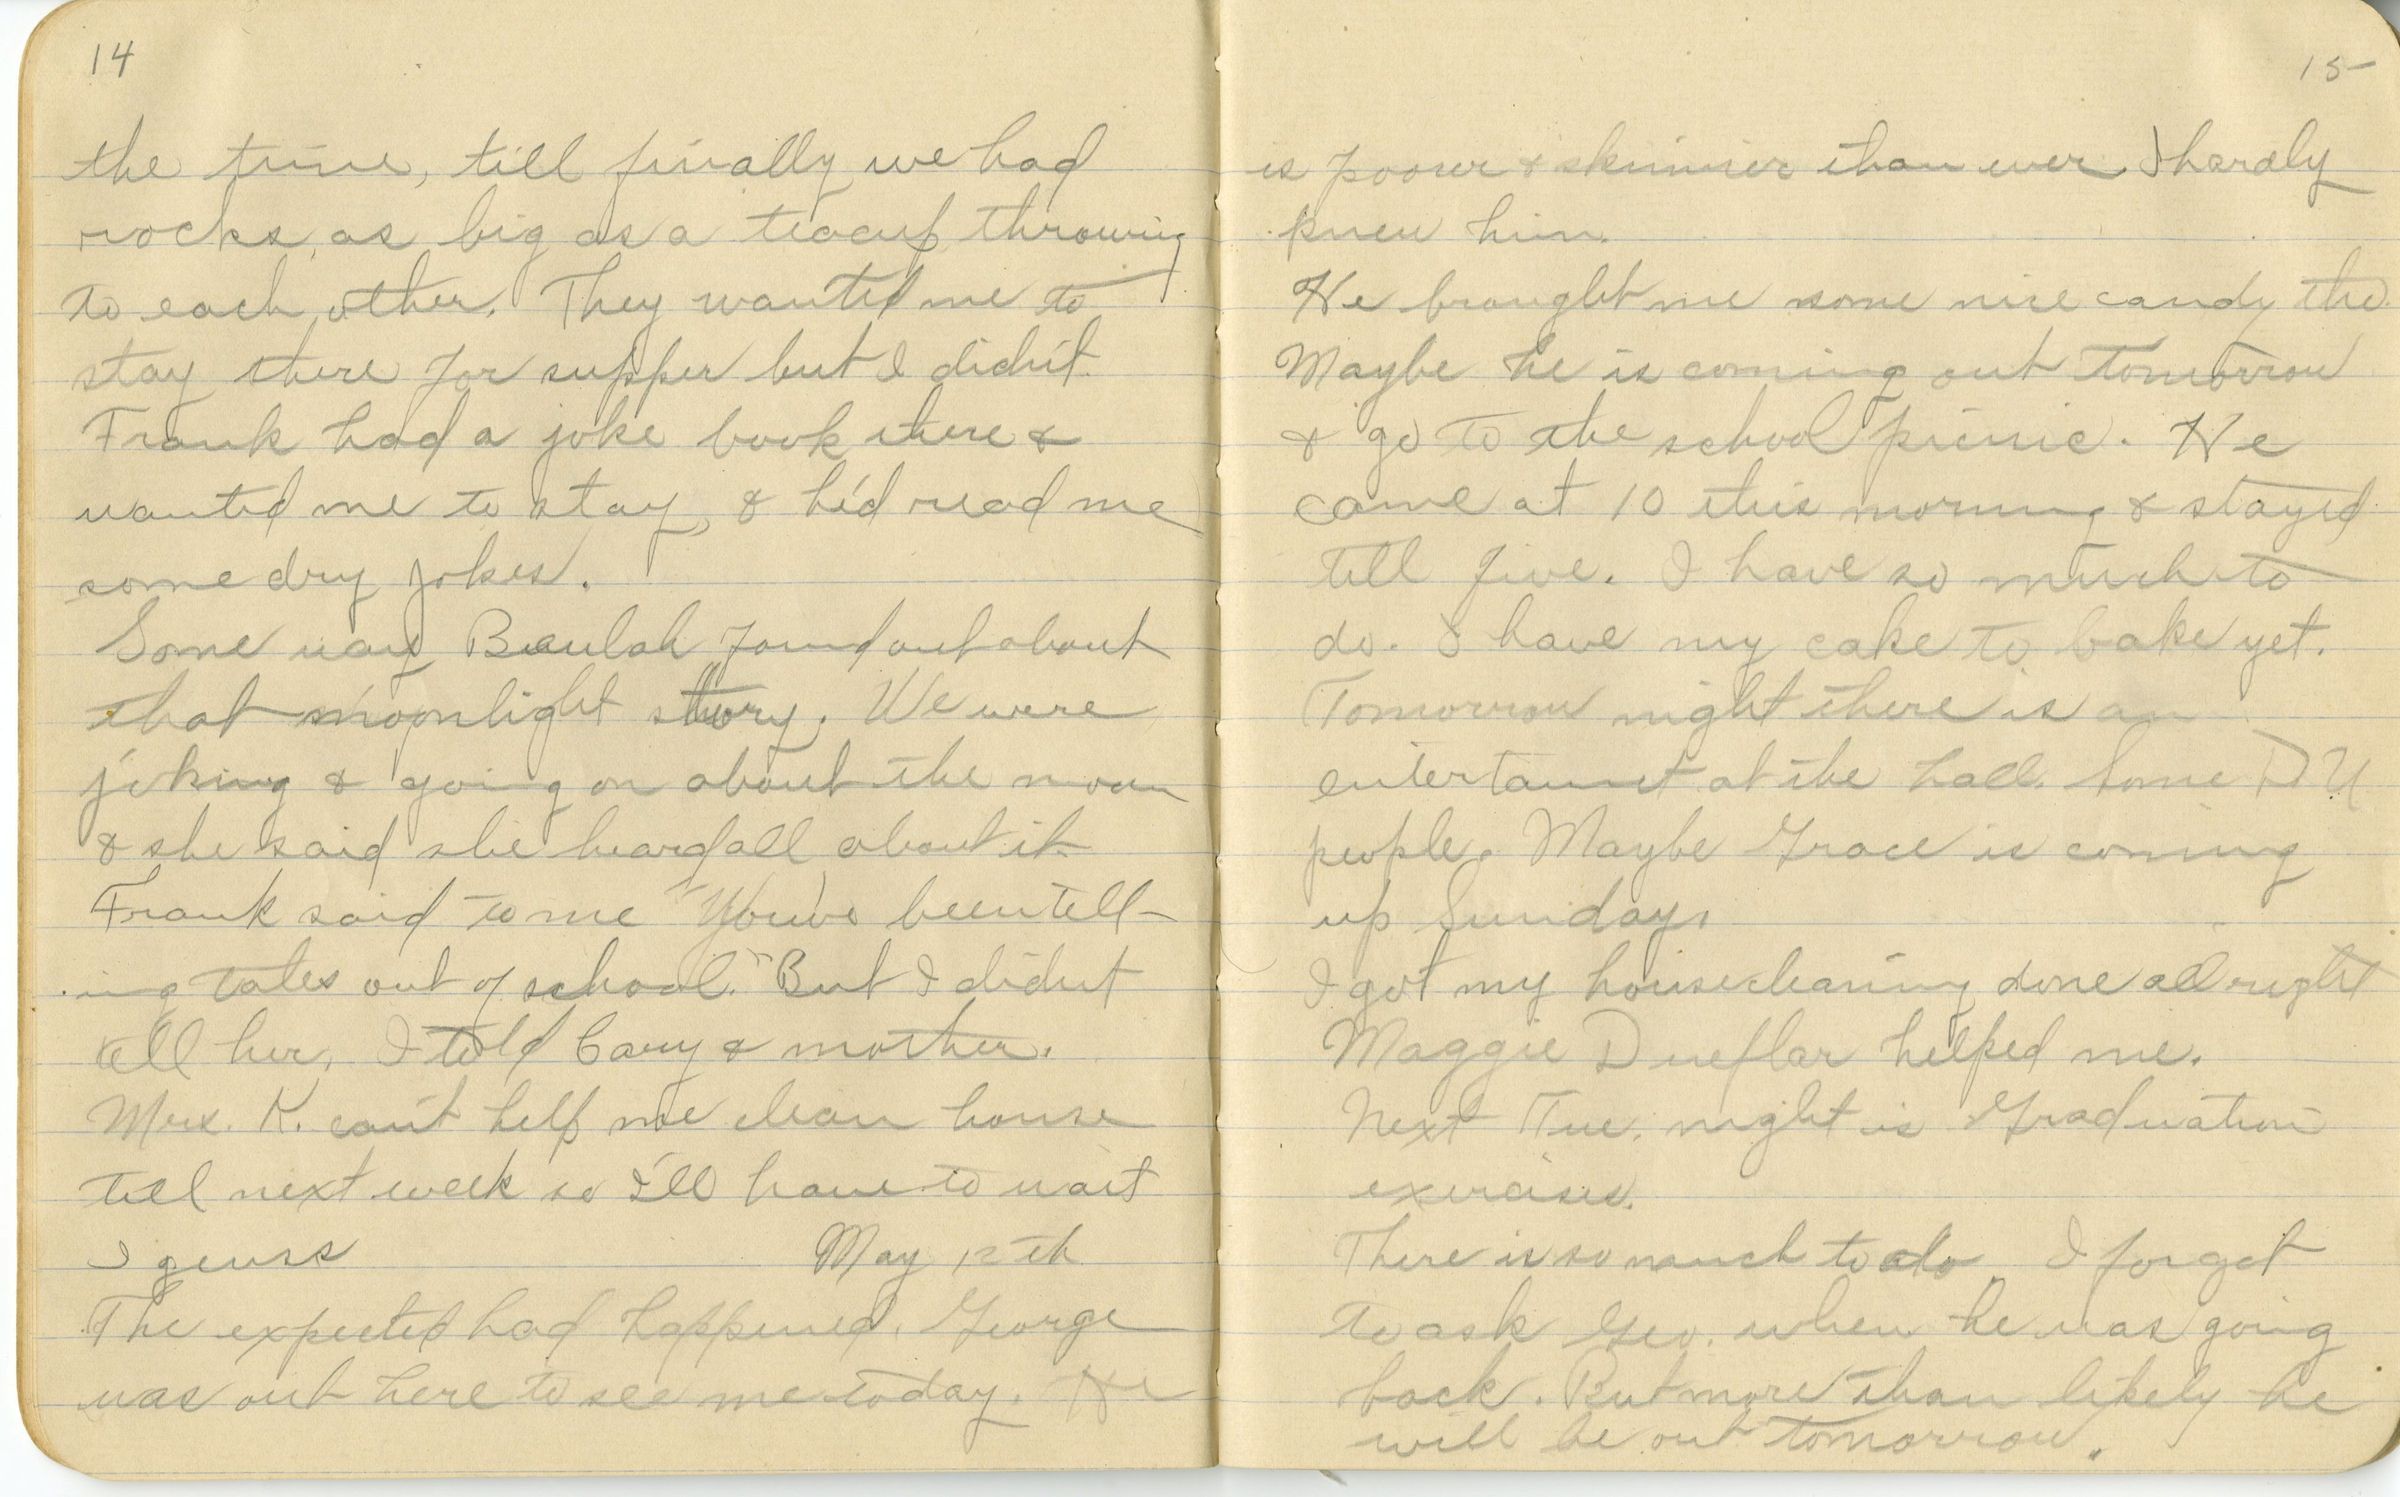 14
the time, till finally we had
rocks as big as a teacup throwing
to each other. They wanted me to
stay there for supper but I didn't.
Frank had a joke book there &
wanted me to stay, & he'd read me
some dry jokes.
Some way Beulah found out about
that moonlight story. We were
joking & going on about the moon
& she said she heard all about it
Frank said to me "You've been tell-
ing tales out of school." But I didn't
tell her, I told Cary & mother.
Mrs. K. can't help me clean house
till next week so I'll have to wait
I guess May 12th
The expected had happened. George
was out here to see me today. He
15
is poorer & skinnier than ever I hardly
knew him.
He brought me some nice candy tho.
Maybe he is coming out tomorrow
& go to the school picnic. He
came at 10 this morning & stayed
till five. I have so much to
do. I have my cake to bake yet.
Tomorrow night there is an
entertaimet at the hall. Some D U
people. Maybe Grace is coming
up Sunday.
I got my housecleaning done all right
Maggie helped me.
Next Tue. night is Graduation
exercises.
There is so much to do I forgot
to ask Geo. when he was going
back. But more than likely he
will be out tomorrow.